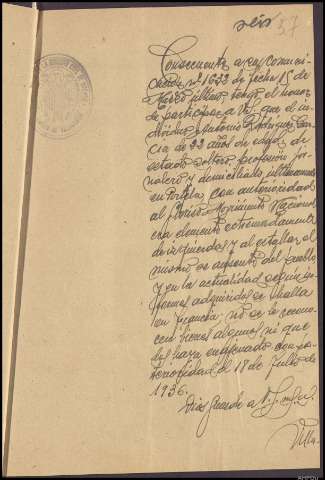 seis 57
Consecuente a su comuni-
cación nº 1633 de fecha 15 de
Marzo último, tengo el honor
de participar a V.S. que el in-
dividuo Antonio Rodriguez Gar-
cia de 22 años de edad, de
estado soltero, profesión jor-
nalero y domiciliado ultimamente
en Portela, con anterioridad
al Glorioso Movimiento Nacional
era elemento extremadamente
de izquierdas y al estallar el
mismo se ausentó del pueblo
y en la actualidad según in-
formes adquiridos se halla
en Francia, no se le recono-
cen bienes algunos ni que
los haya enagenado con pos-
terioridad al 18 de Julio de
1936.
Dios guarde a V.S. m. a.
Villa-